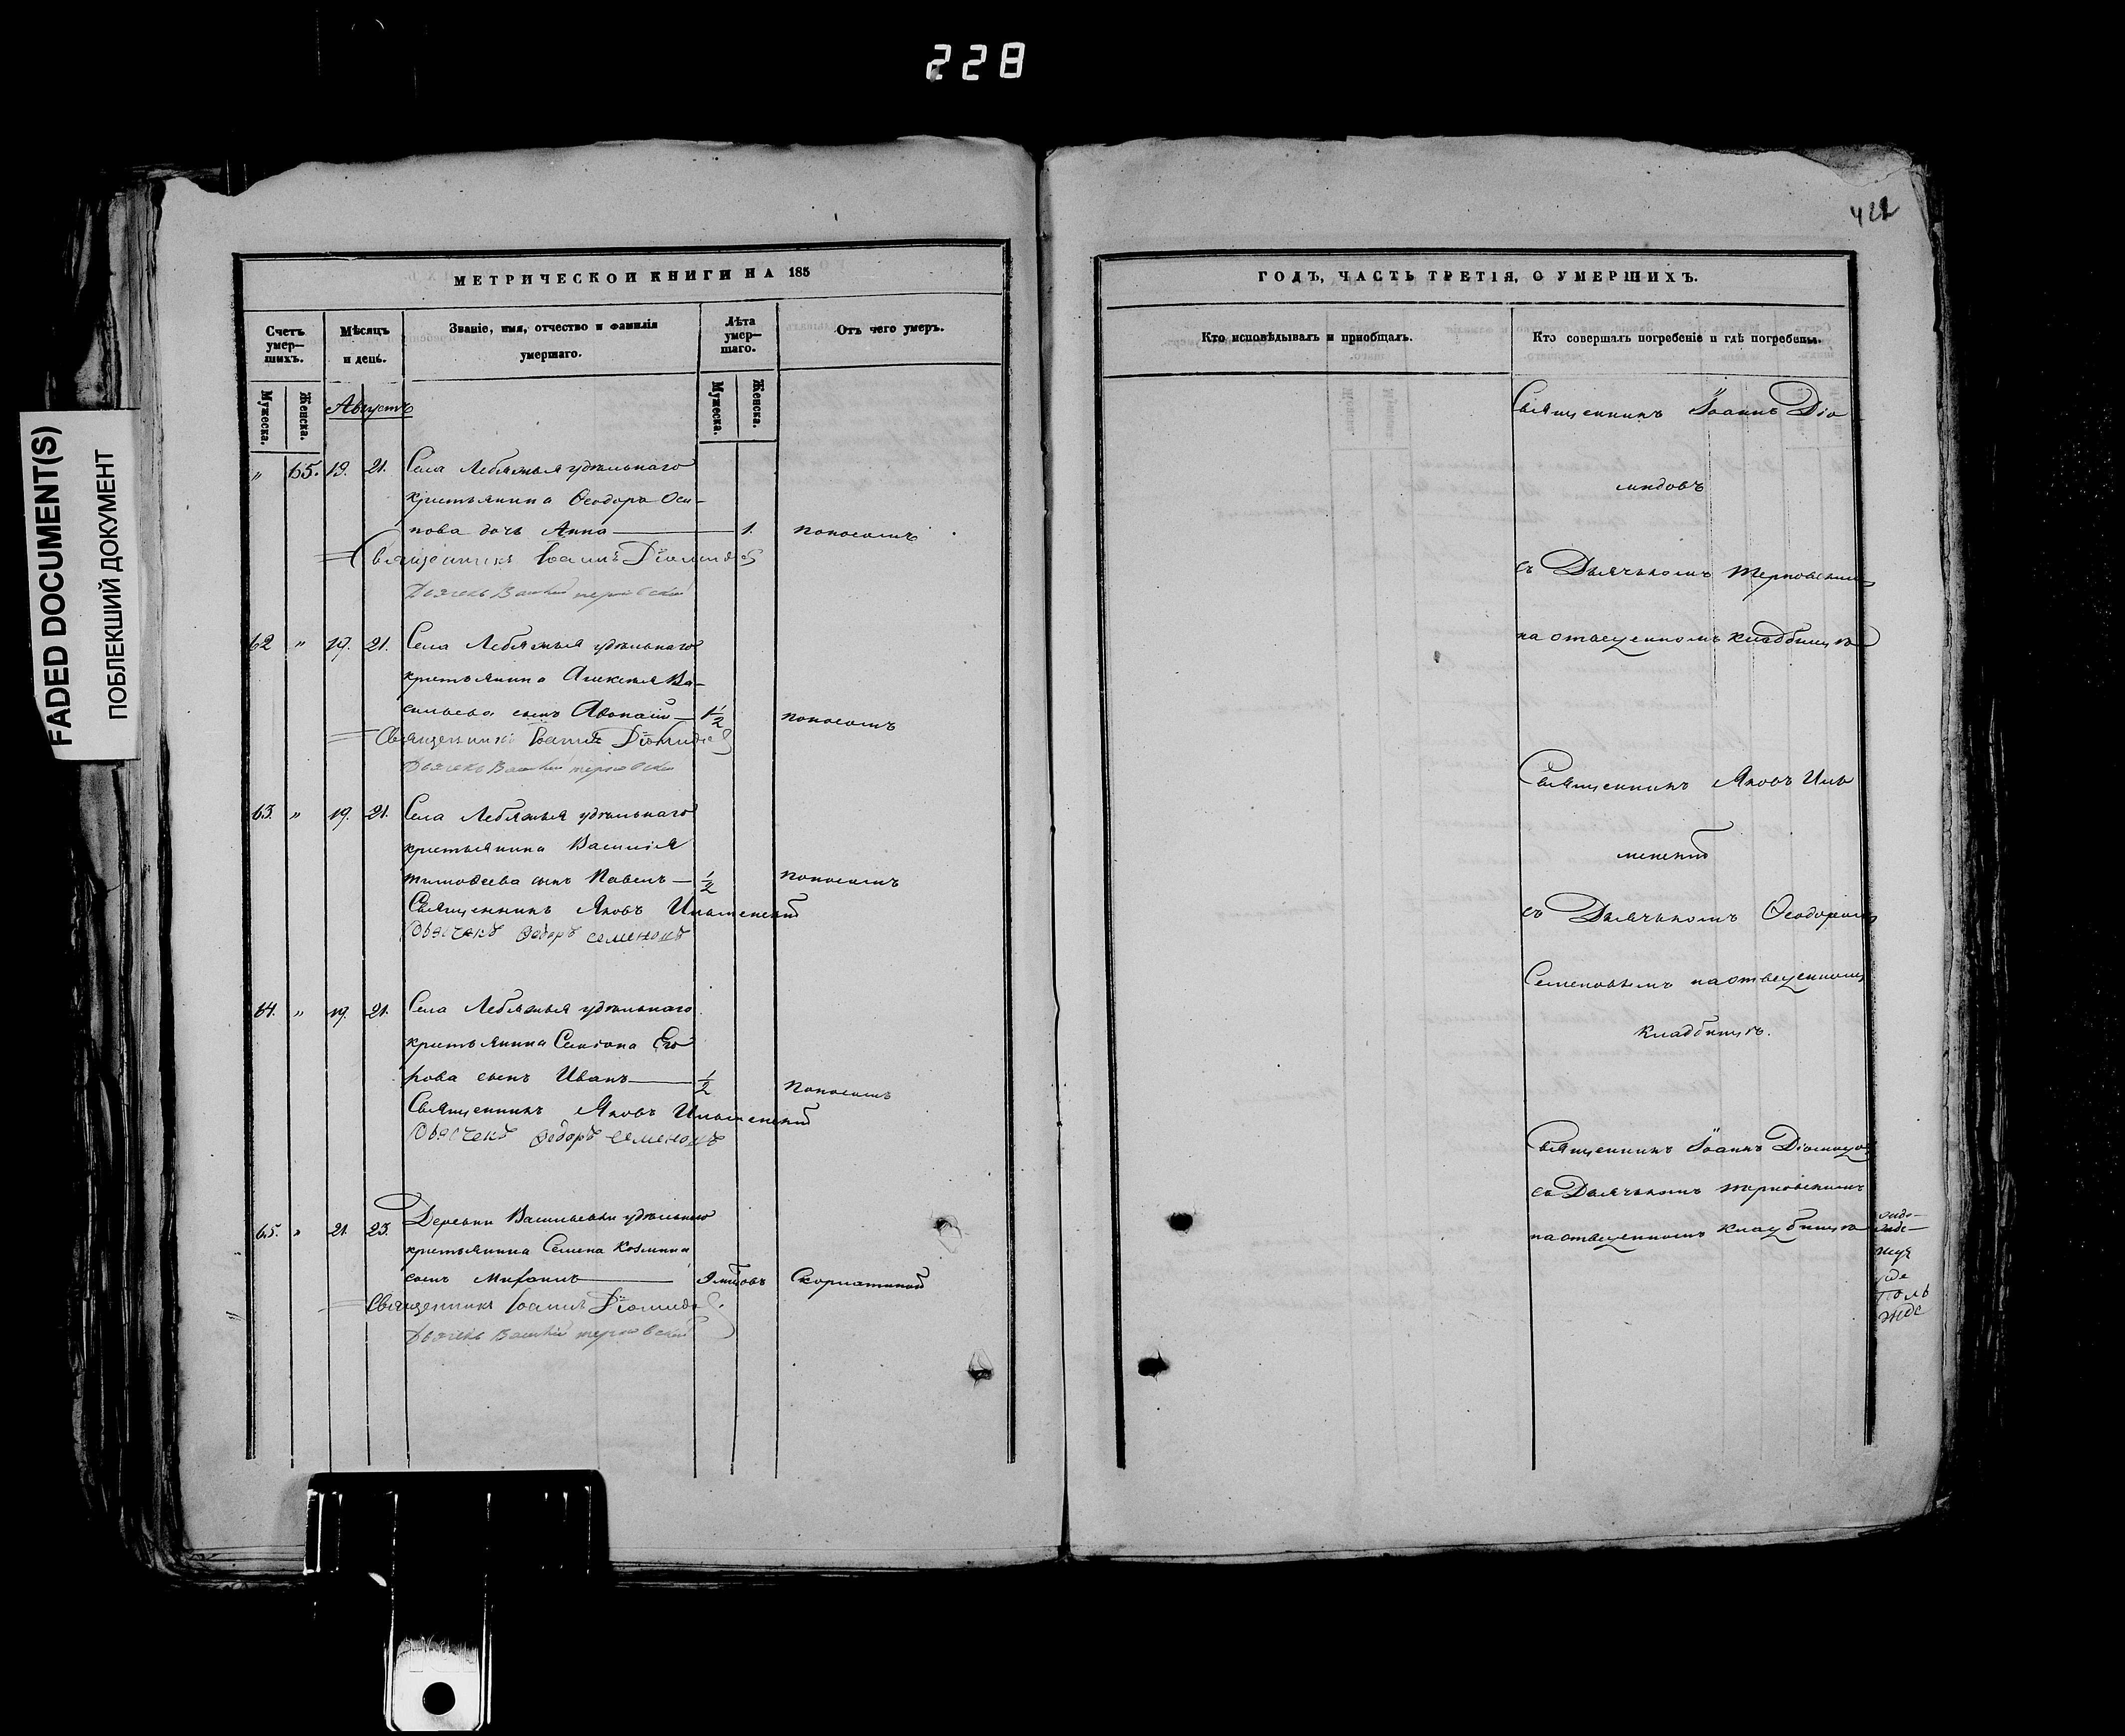 228
FADED DOCUMENT(S)
ПОБЛЕКШИЙ ДОКУМЕНТ
МЕТРИЧЕСКОЙ КНИГИ НА 185
Счетъ умер-шихъ.
Мѣсяцъ и день.
Званіе, имя, отчество и фамилія умершаго.
Лѣта умер-шаго.
Отъ чего умеръ.
Мужеска.
Женска.
Мужеска.
Женска.
Августъ
" 65. 19. 21. Села Лебяжья удѣльнаго
крестьянина Ѳеодора Оси-
пова дочь Анна 1. Поносомъ
Священникъ Іоаннъ Діомидовъ
Дьячекъ Терновскій
62 " 19. 21. Села Лебяжья удѣльнаго
крестьянина Алексѣя Ва-
сильева сынъ 1½ Поносомъ
Священникъ Іоаннъ Діомидовъ
Дьячекъ Терновскій
63. " 19. 21. Села Лебяжья удѣльнаго
крестьянина Василія
Тимоѳеева сынъ Павелъ ½ Поносомъ
Священникъ Яковъ Ильменскій
Дьячекъ Ѳедоръ Семеновъ
64. " 19. 21. Села Лебяжья удѣльнаго
крестьянина Семіона Его
рова сынъ Иванъ ½ Поносомъ
Священникъ Яковъ Ильменскій
Дьячекъ Ѳедоръ Семеновъ
65. " 21. 23. Деревни Васильевки удѣльнаго
крестьянина Семена Козмина
сынъ Михаилъ Скорлатиной
Священникъ Іоаннъ Діомидовъ
Дьячекъ Терновскій
422
ГОДЪ, ЧАСТЬ ТРЕТІЯ, О УМЕРШИХЪ.
Кто исповѣдывалъ и пріобщалъ.
Кто совершалъ погребеніе и гдѣ погребены.
Священникъ Іоаннъ Діо
мидовъ
съ Дьячькомъ Терновскимъ
на отведенномъ кладбищѣ
Священникъ Яковъ Иль
менскій
съ Дьячькомъ Ѳеодоромъ
Семеновымъ на отведенномъ
кладбищѣ.
Священникъ Іоаннъ Діомидов
съ Дьячькомъ Терновскимъ
на отведенномъ кладбищѣ